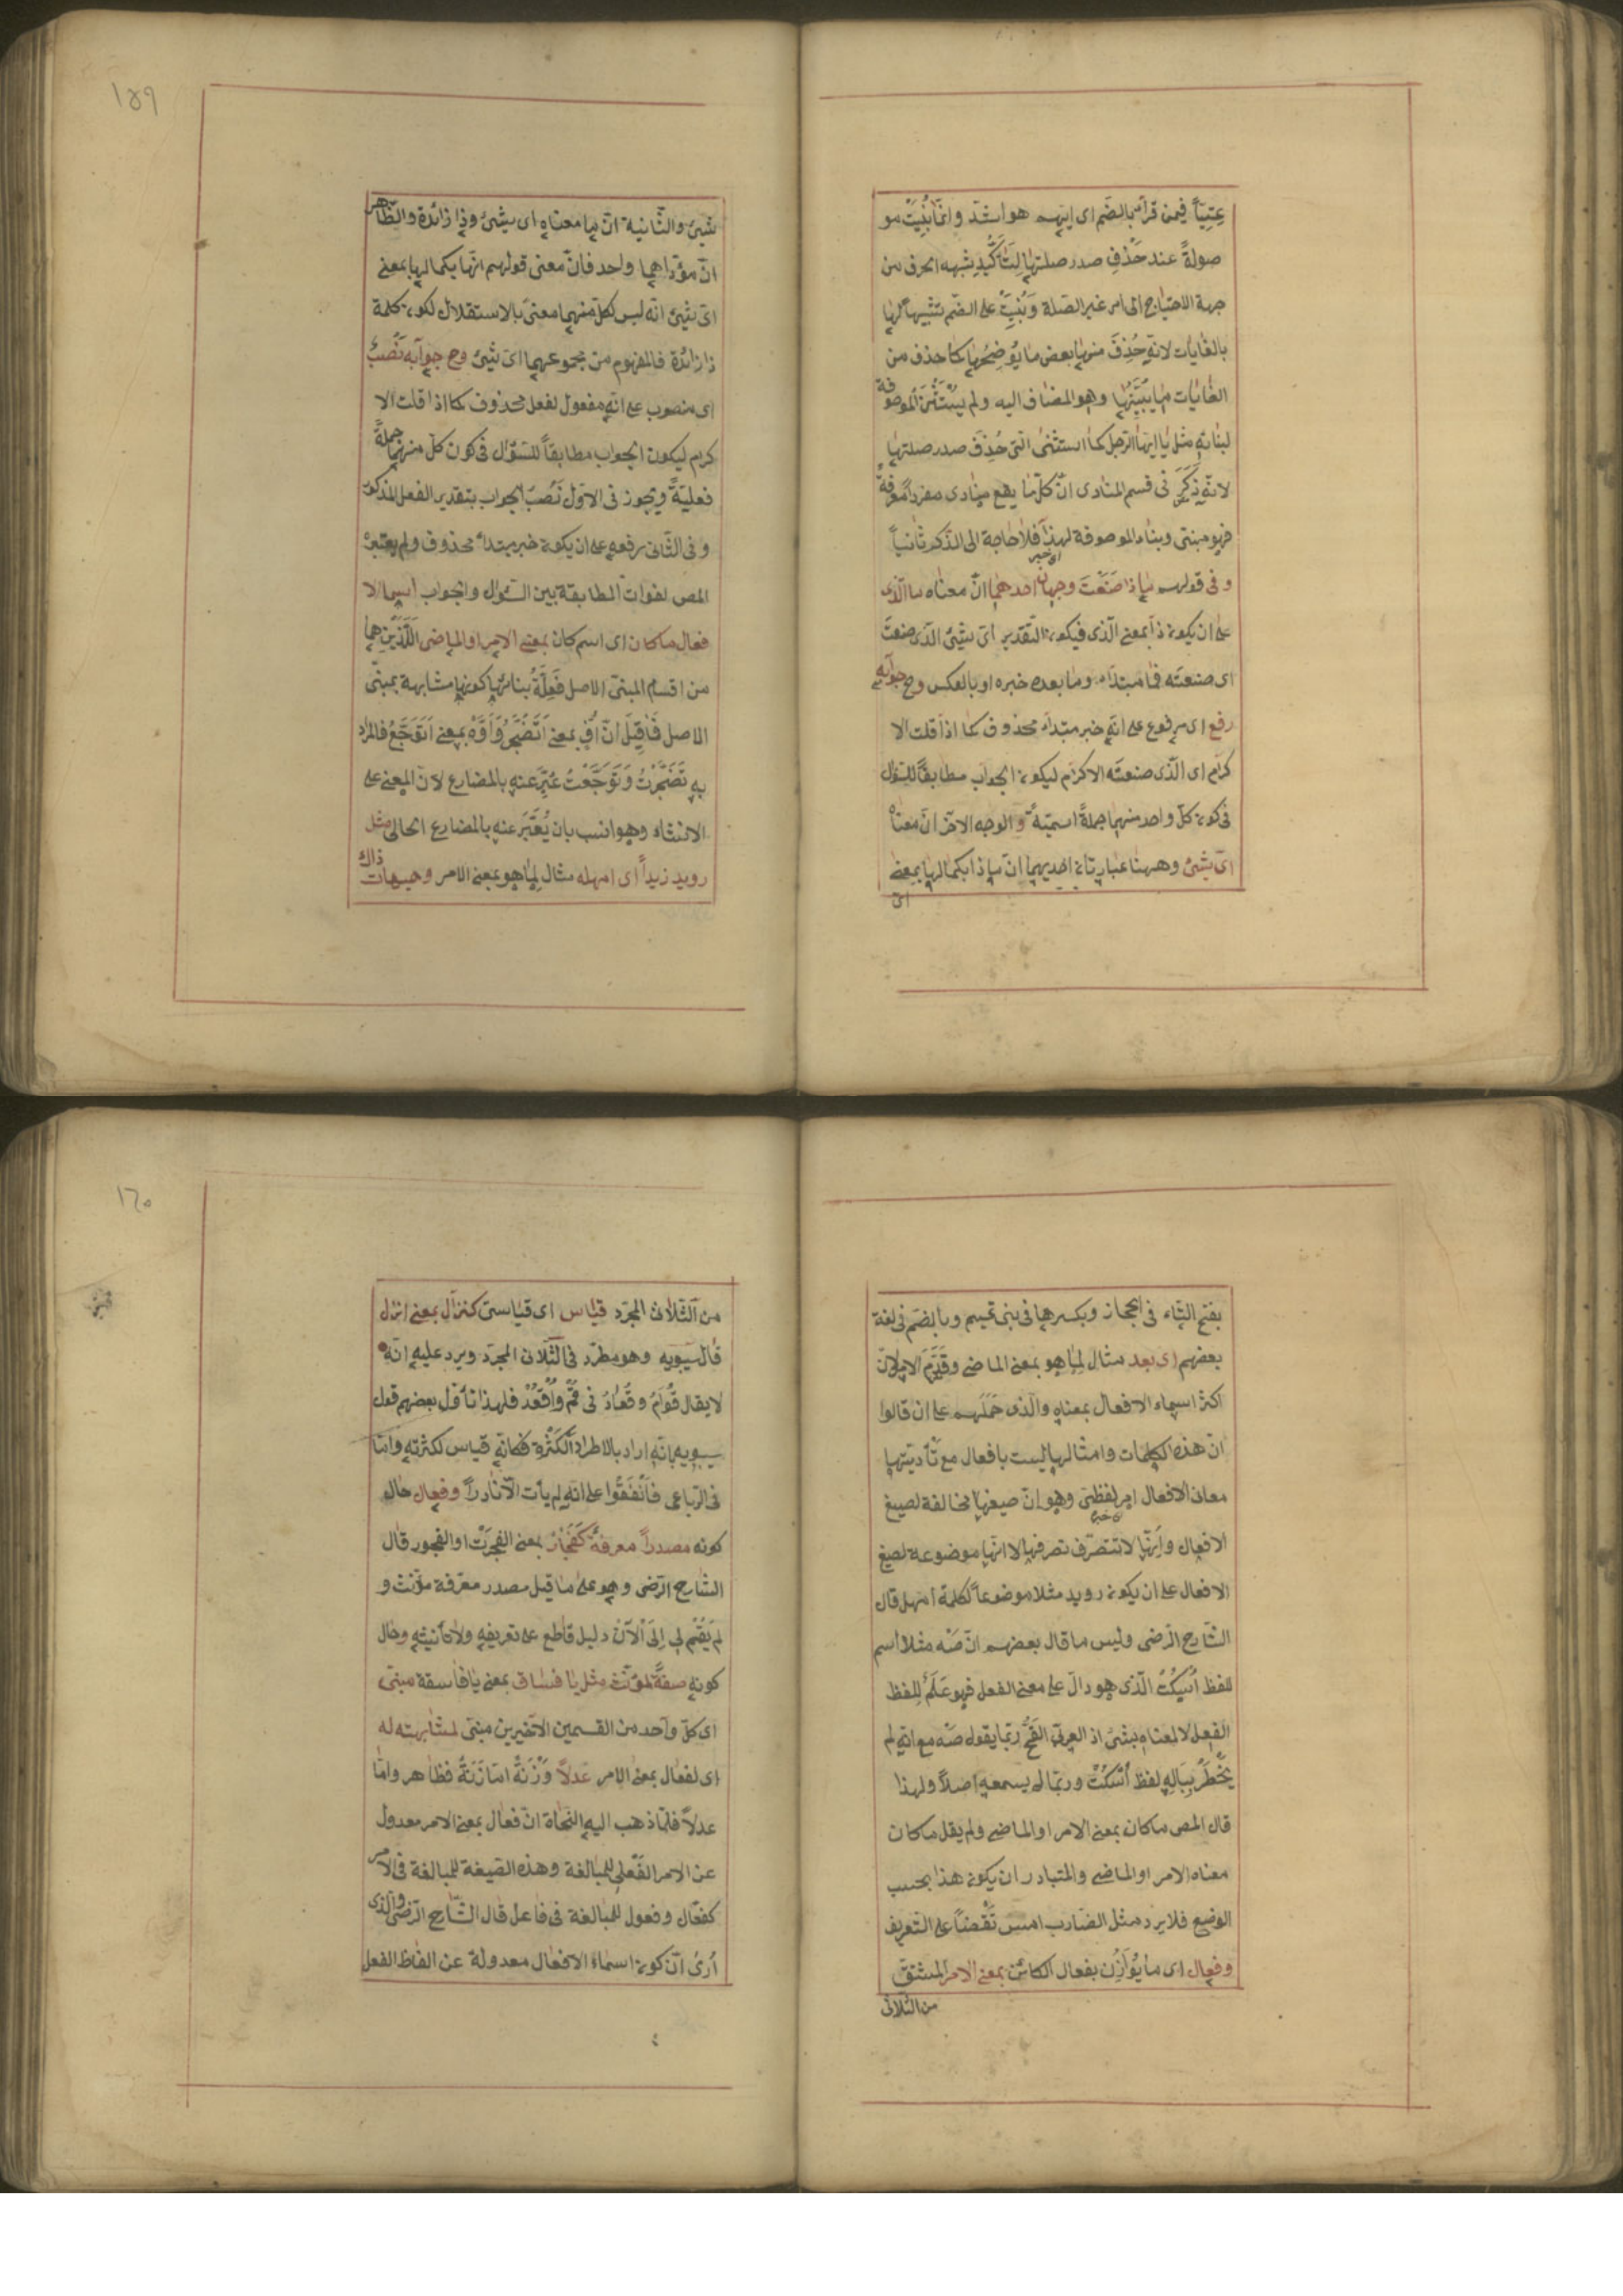 عِتِيّاً فيمن قرأ بالضم اى ايهم هو اشد وانما بُنِيَت مو
صولةً عند حَذْفِ صدر صلتها لِتَأكُّدِ شبهه الحرف من
جهة الاحتياج الى امر غير الصلة وَبُنِيَتْ على الضّم تشبيهاً لها
بالغايات لانه حُذِفَ منها بعض ما يُوضِحُها كما حذف من
الغايات ما يُبَيِّنُها وهو المضاف اليه ولم يستثن الموصوفة
لبنائه مثل يا ايها الرّجل كما استثنى التى حُذِفَ صدر صلتها
لانه ذَكَرَ فى قسم المنادى انّ كلّ ما يقع منادى مفرداً معرفةً
فهو مبنى وبناء الموصوفة لهذا فلا حاجة الى الذّكر ثانياً
وفى قولهم ما ذا صَنَعْتَ وجهان احدهما انّ معناه ما الّذى
على ان يكون ذا بمعنى الّذى فيكون التّقدير اى شئ الّذى صنعتَ
اى صنعته فما مبتداء وما بعده خبره او بالعكس وح جوابه
رفع اى مرفوع على انّه خبر مبتداء محذوف كما اذا قلت الا
كرام اى الّذى صنعته الاكرام ليكون الجواب مطابقاً للسؤال
فى كون كلّ واحد منهما جملةً اسميّةً والوجه الآخر انّ معناه
اىّ شئ وههنا عبارتان احديهما انّ ما ذا بكمالها بمعنى
اىّ
١٥٩
شئ والثّانية انّ ما معناه اى شئ وذا زائدة والظّاهر
انّ مؤدّاهما واحد فانّ معنى قولهم انّها بكمالها بمعنى
اى شئ انه ليس لكلّ منهما معنىً بالاستقلال لكون كلمة
ذا زائدة فالمفهوم من مجموعهما اىّ شئ وح جوابه نَصْبٌ
اى منصوب على انّه مفعول لفعل محذوف كما اذا قلت الا
كرام ليكون الجواب مطابقاً للسّؤال فى كون كلّ منهما جملةً
فعليّةً ويجوز فى الاوّل نَصْبُ الجواب بتقدير الفعل المذكور
وفى الثّانى رفعه على ان يكون خبر مبتداء محذوف ولم يعتبره
المص لفوات المطابقة بين السّؤال والجواب اسماء الا
فعال ما كان اى اسم كان بمعنى الامر او الماضى اللّذَيْنِ هما
من اقسام المبنىّ الاصل فَعِلَّةُ بنائها كونها مشابهة بمبنىّ
الاصل فَمَا قِيلَ انّ اُفٍّ بمعنى اَتَضَجَّرُ وَاَوَّهْ بمعنى اَتَوَجَّعُ فالمراد
به تَضَجَّرْتُ وَتَوَجَّعْتُ عُبِّرَ عنه بالمضارع لانّ المعنى على
الانشاء وهو انسب بان يُعَبَّرَ عنه بالمضارع الحالى مثل
رويد زيداً اى امهله مثال لِما هو بمعنى الامر وهيهات ذاك
بفتح التّاء فى الحجاز وبكسرها فى بنى تميم وبالضم فى لغة
بعضهم اى بعد مثال لِما هو بمعنى الماضى وقَدَّمَ الامر لانّ
اكثر اسماء الافعال بمعناه والّذى حَمَلَهم على ان قالوا
انّ هذه الكلمات وامثالها ليست بافعال مع تَأديتها
معانى الافعال امر لفظىّ وهو انّ صيغها مخالفة لصيغ
الافعال وأنّها لا تتصرّف تصرفها لا انها موضوعة لصيغ
الافعال على ان يكون رويد مثلا موضوعاً لكلمة اَمهل قال
الشّارح الرّضى وليس ما قال بعضهم انّ صَهْ مثلا اسم
للفظ اُسْكُتْ الّذى هو دالّ على معنى الفعل فهو عَلَمٌ للفظ
الفعل لا لمعناه بشئ اذ العربىّ القُحُّ ربّما يقول صَهْ مع انّه لم
يَخْطُرْ بِبَالِهِ لفظ اُسْكُتْ وربّما لم يسمعه اصلاً ولهذا
قال المص ما كان بمعنى الامر او الماضى ولم يقل ما كان
معناه الامر او الماضى والمتبادر ان يكون هذا بحسب
الوضع فلا يرد مثل الضّارب امس نَقْضاً على التّعريف
وفعال اى ما يُوَازِن بفعال الكائن بمعنى الامر المشتقّ
من الثلاثى
١٦٠
من الثّلاثى المجرّد قياس اى قياسىّ كنزال بمعنى انزل
قال سيبويه وهو مطرّد فى الثّلاثى المجرّد ويرد عليه انّه
لا يقال قَوَامِ وقَعَادِ فى قُمْ واُقْعُدْ فلهذا تأوّل بعضهم قول
سيبويه بانّه اراد بالاطراد الكَثْرة فكانّه قياس لكثرته وامّا
فى الرّباعى فَاتّفقُوا على انّه لم يأت الّا نادراً وفعال حال
كونه مصدراً معرفةً كَفَجَارِ بمعنى الفَجْرَة او الفجور قال
الشّارح الرّضى وهو على ما قيل مصدر معرفة مؤنّث و
لم يَقُمْ لى اِلَى الْآنْ دليل قاطع على تعريفه ولا تأنيثه وحال
كونه صفةً لمؤنّث مثل يا فساق بمعنى يا فاسقة مبنىّ
اى كلّ واحد من القسمين الاخيرين مبنى لمشابهته له
اى لفعال بمعنى الامر عَدلاً وَزْنَةً امّا زَنَةً فظاهر وامّا
عدلاً فلما ذهب اليه النّحاة انّ فعال بمعنى الامر معدول
عن الامر الفعلى للمبالغة وهذه الصّيغة للمبالغة فى الامر
كفعّال وفعول للمبالغة فى فاعل قال الشّارح الرّضى والذى
اَرىٰ انّ كون اسماء الافعال معدولة عن الفاظ الفعل